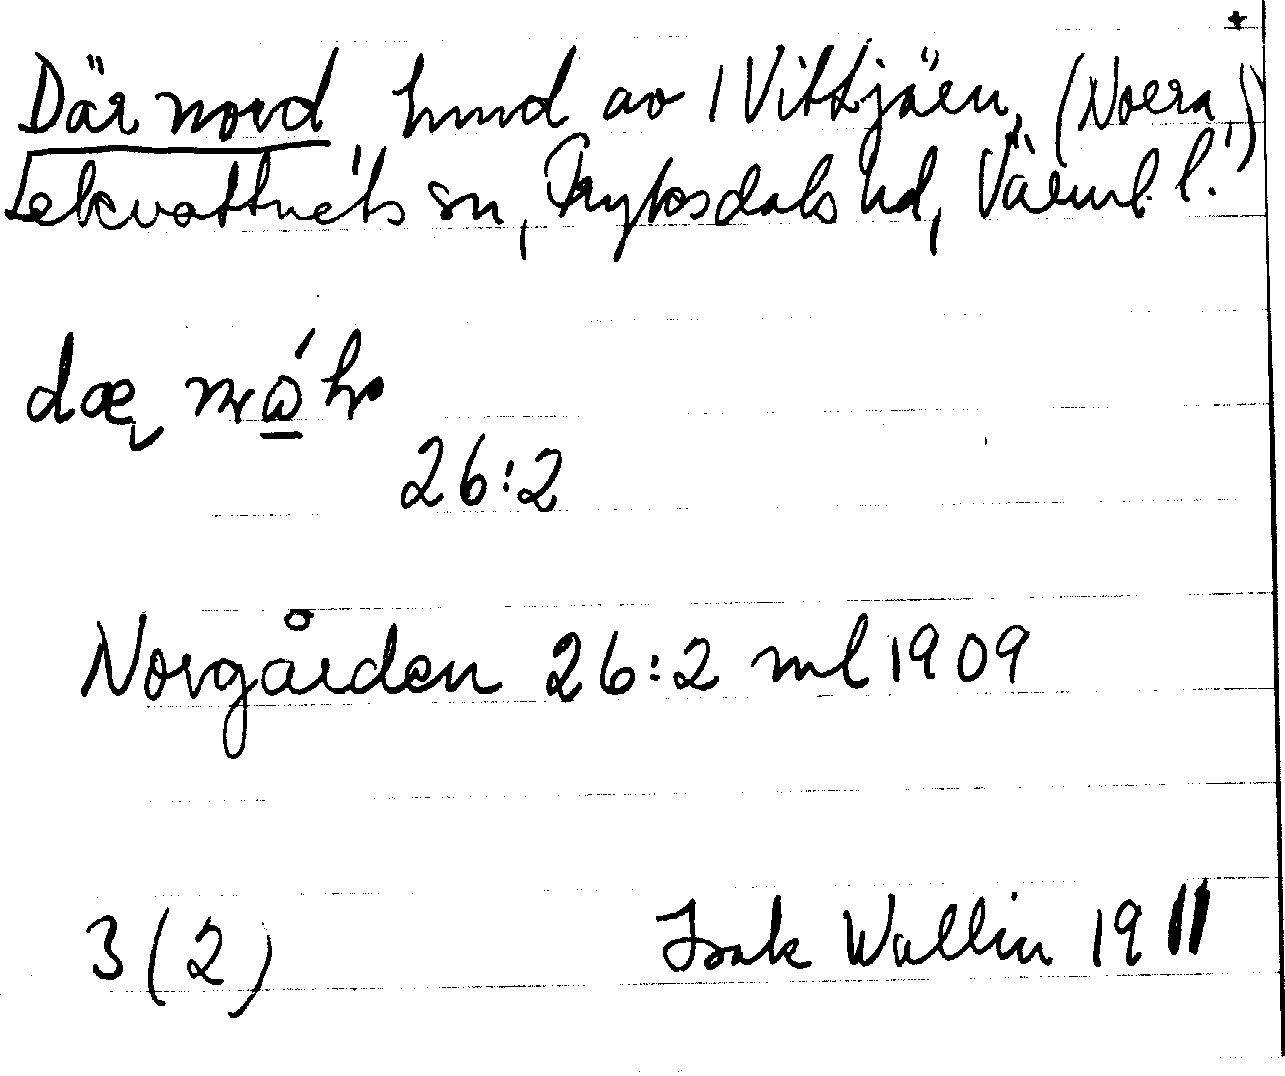 Där nord hmd av 1 Vittjärn, (Norra,)
Lekvattnets sn, Fryksdals hd, Värml l.
26:2
Norgården 26:2 ml 1909
3 (2) Isak Wallin 1911